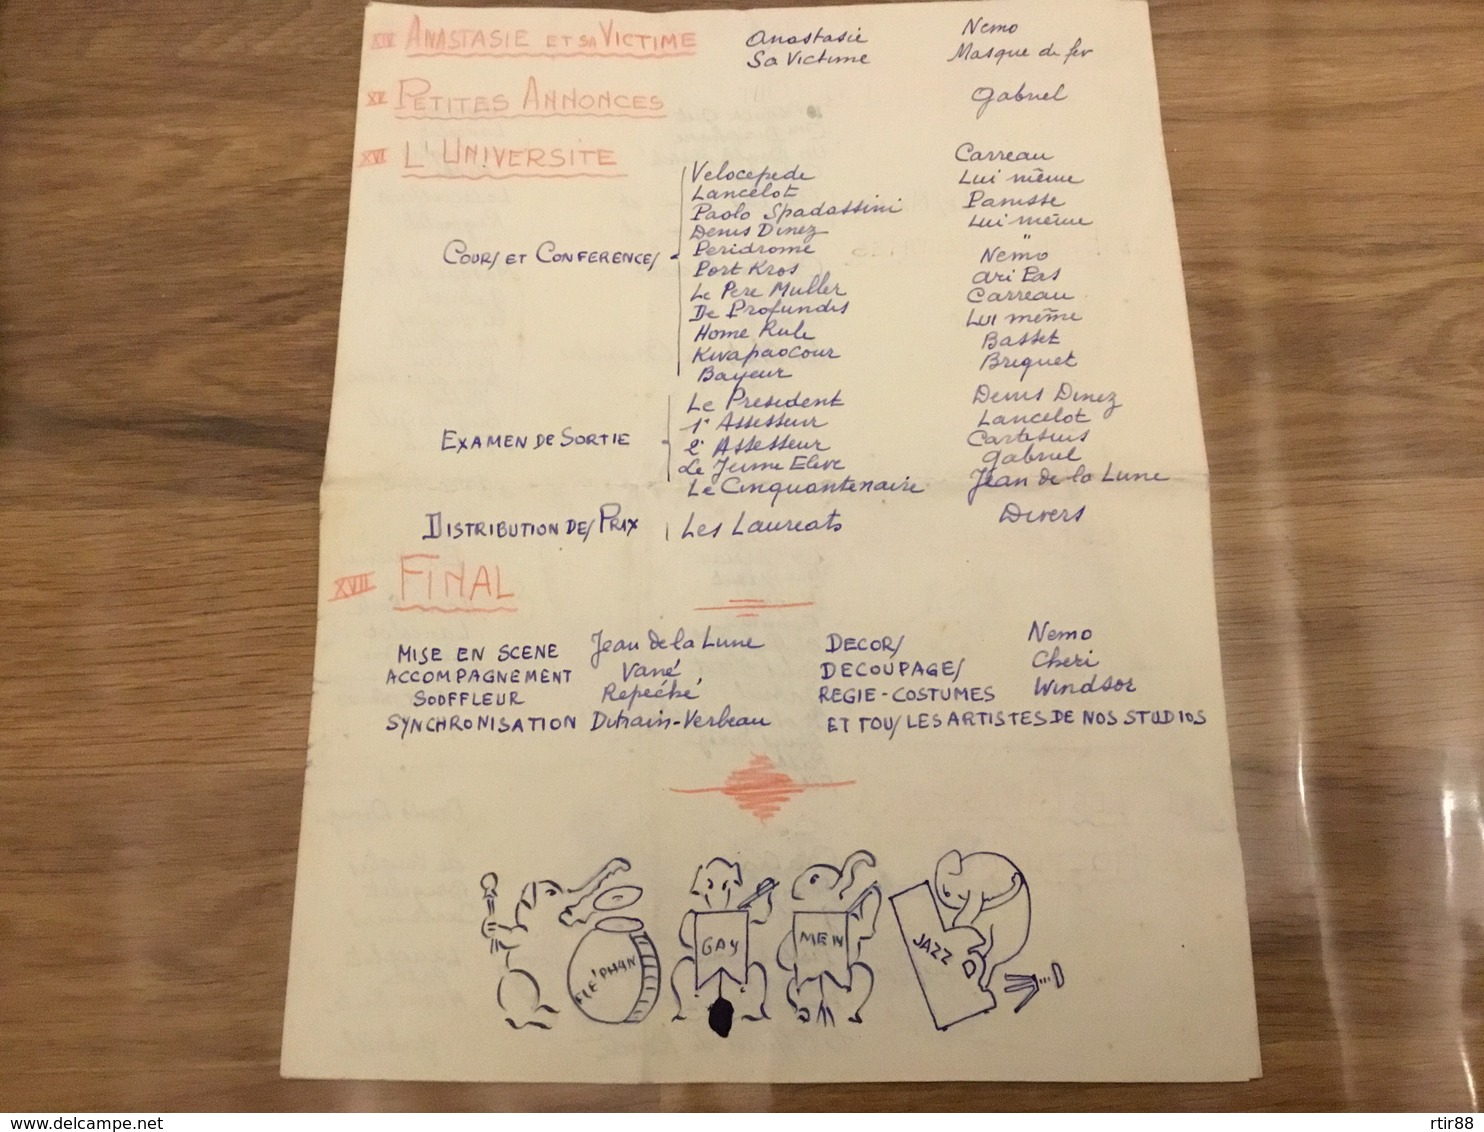 XIV ANASTASIE ET SA VICTIME Anastasie Nemo
Sa Victime Masque de fer
XV PETITES ANNONCES Gabriel
XVI L'UNIVERSITE
Velocepede Carreau
Lancelot Lui même
Paolo Spadassini Panisse
Denis Dinez Lui même
COURS ET CONFERENCES Peridrome "
Port Kros Nemo
Le Pere Muller Ari Pas
De Profundis Carreau
Home Rule Lui même
Kwapaocour Basset
Bayeur Briquet
Le President Denis Dinez
1e Assesseur Lancelot
EXAMEN DE SORTIE 2e Assesseur
Le Jeune Eleve Gabriel
Le Cinquantenaire Jean de la Lune
DISTRIBUTION DES PRIX Les Laureats Divers
XVII FINAL
MISE EN SCENE Jean de la Lune DECORS Nemo
ACCOMPAGNEMENT Vané DECOUPAGES Cheri
SOUFFLEUR Repéché REGIE-COSTUMES Windsor
SYNCHRONISATION Dutrain-Verbeau ET TOUS LES ARTISTES DE NOS STUDIOS
ELÉPHAN GAY MEN JAZZ
rtir88